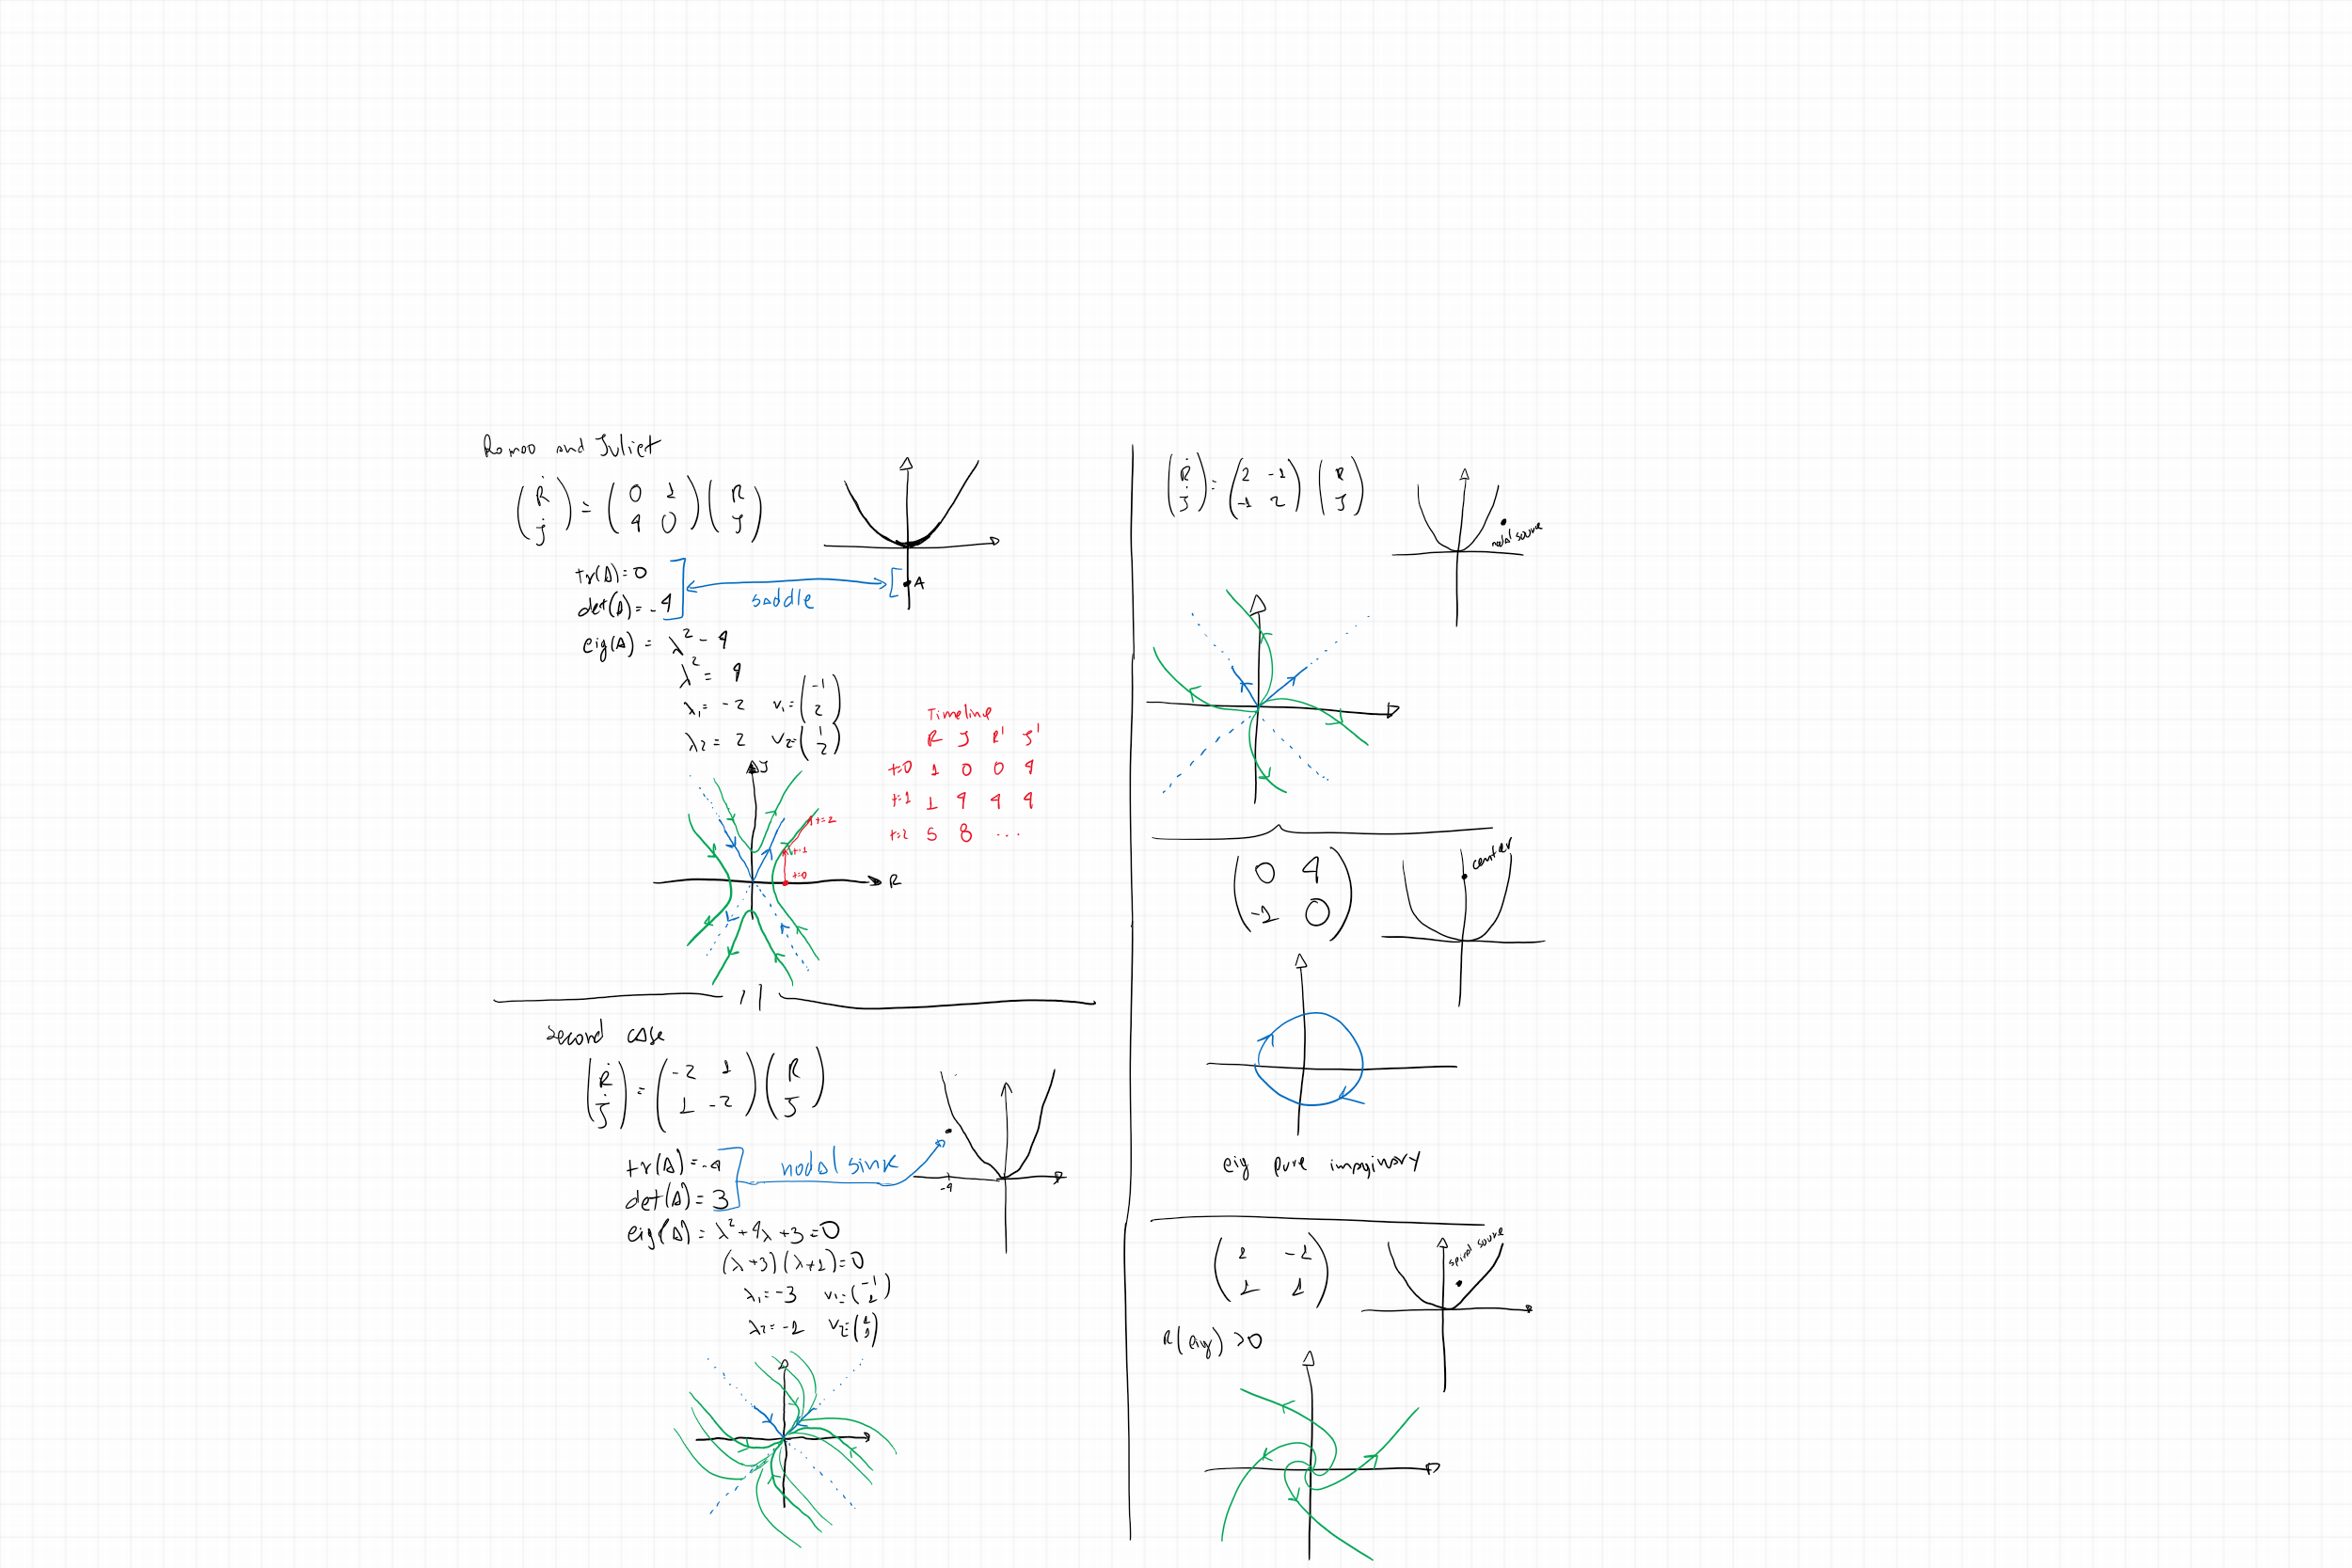 Romoo and Juliet
(Ṙ J̇) = (0 1 4 0) (R J)
tr(A)=0
det(A)=-4
saddle
A
eig(A) = λ² - 4
λ² = 4
λ₁ = -2 v₁ = (-1 2)
λ₂ = 2 v₂ = (1 2)
Timeline
R J R' J'
t=0 1 0 0 4
t=1 1 4 4 4
t=2 5 8 ...
J
t=2
t=1
t=0
R
second case
(Ṙ J̇) = (-2 1 1 -2) (R J)
tr(A)=-4
det(A)=3
nodal sink
-4
eig(A) = λ²+4λ+3=0
(λ+3)(λ+1)=0
λ₁=-3 v₁=(-1 1)
λ₂=-1 v₂=(1 1)
(Ṙ J̇) = (2 -1 -1 2) (R J)
nodal source
(0 4 -1 0)
center
eig pure impginary
(1 -1 1 1)
spiral source
R(eig) >0